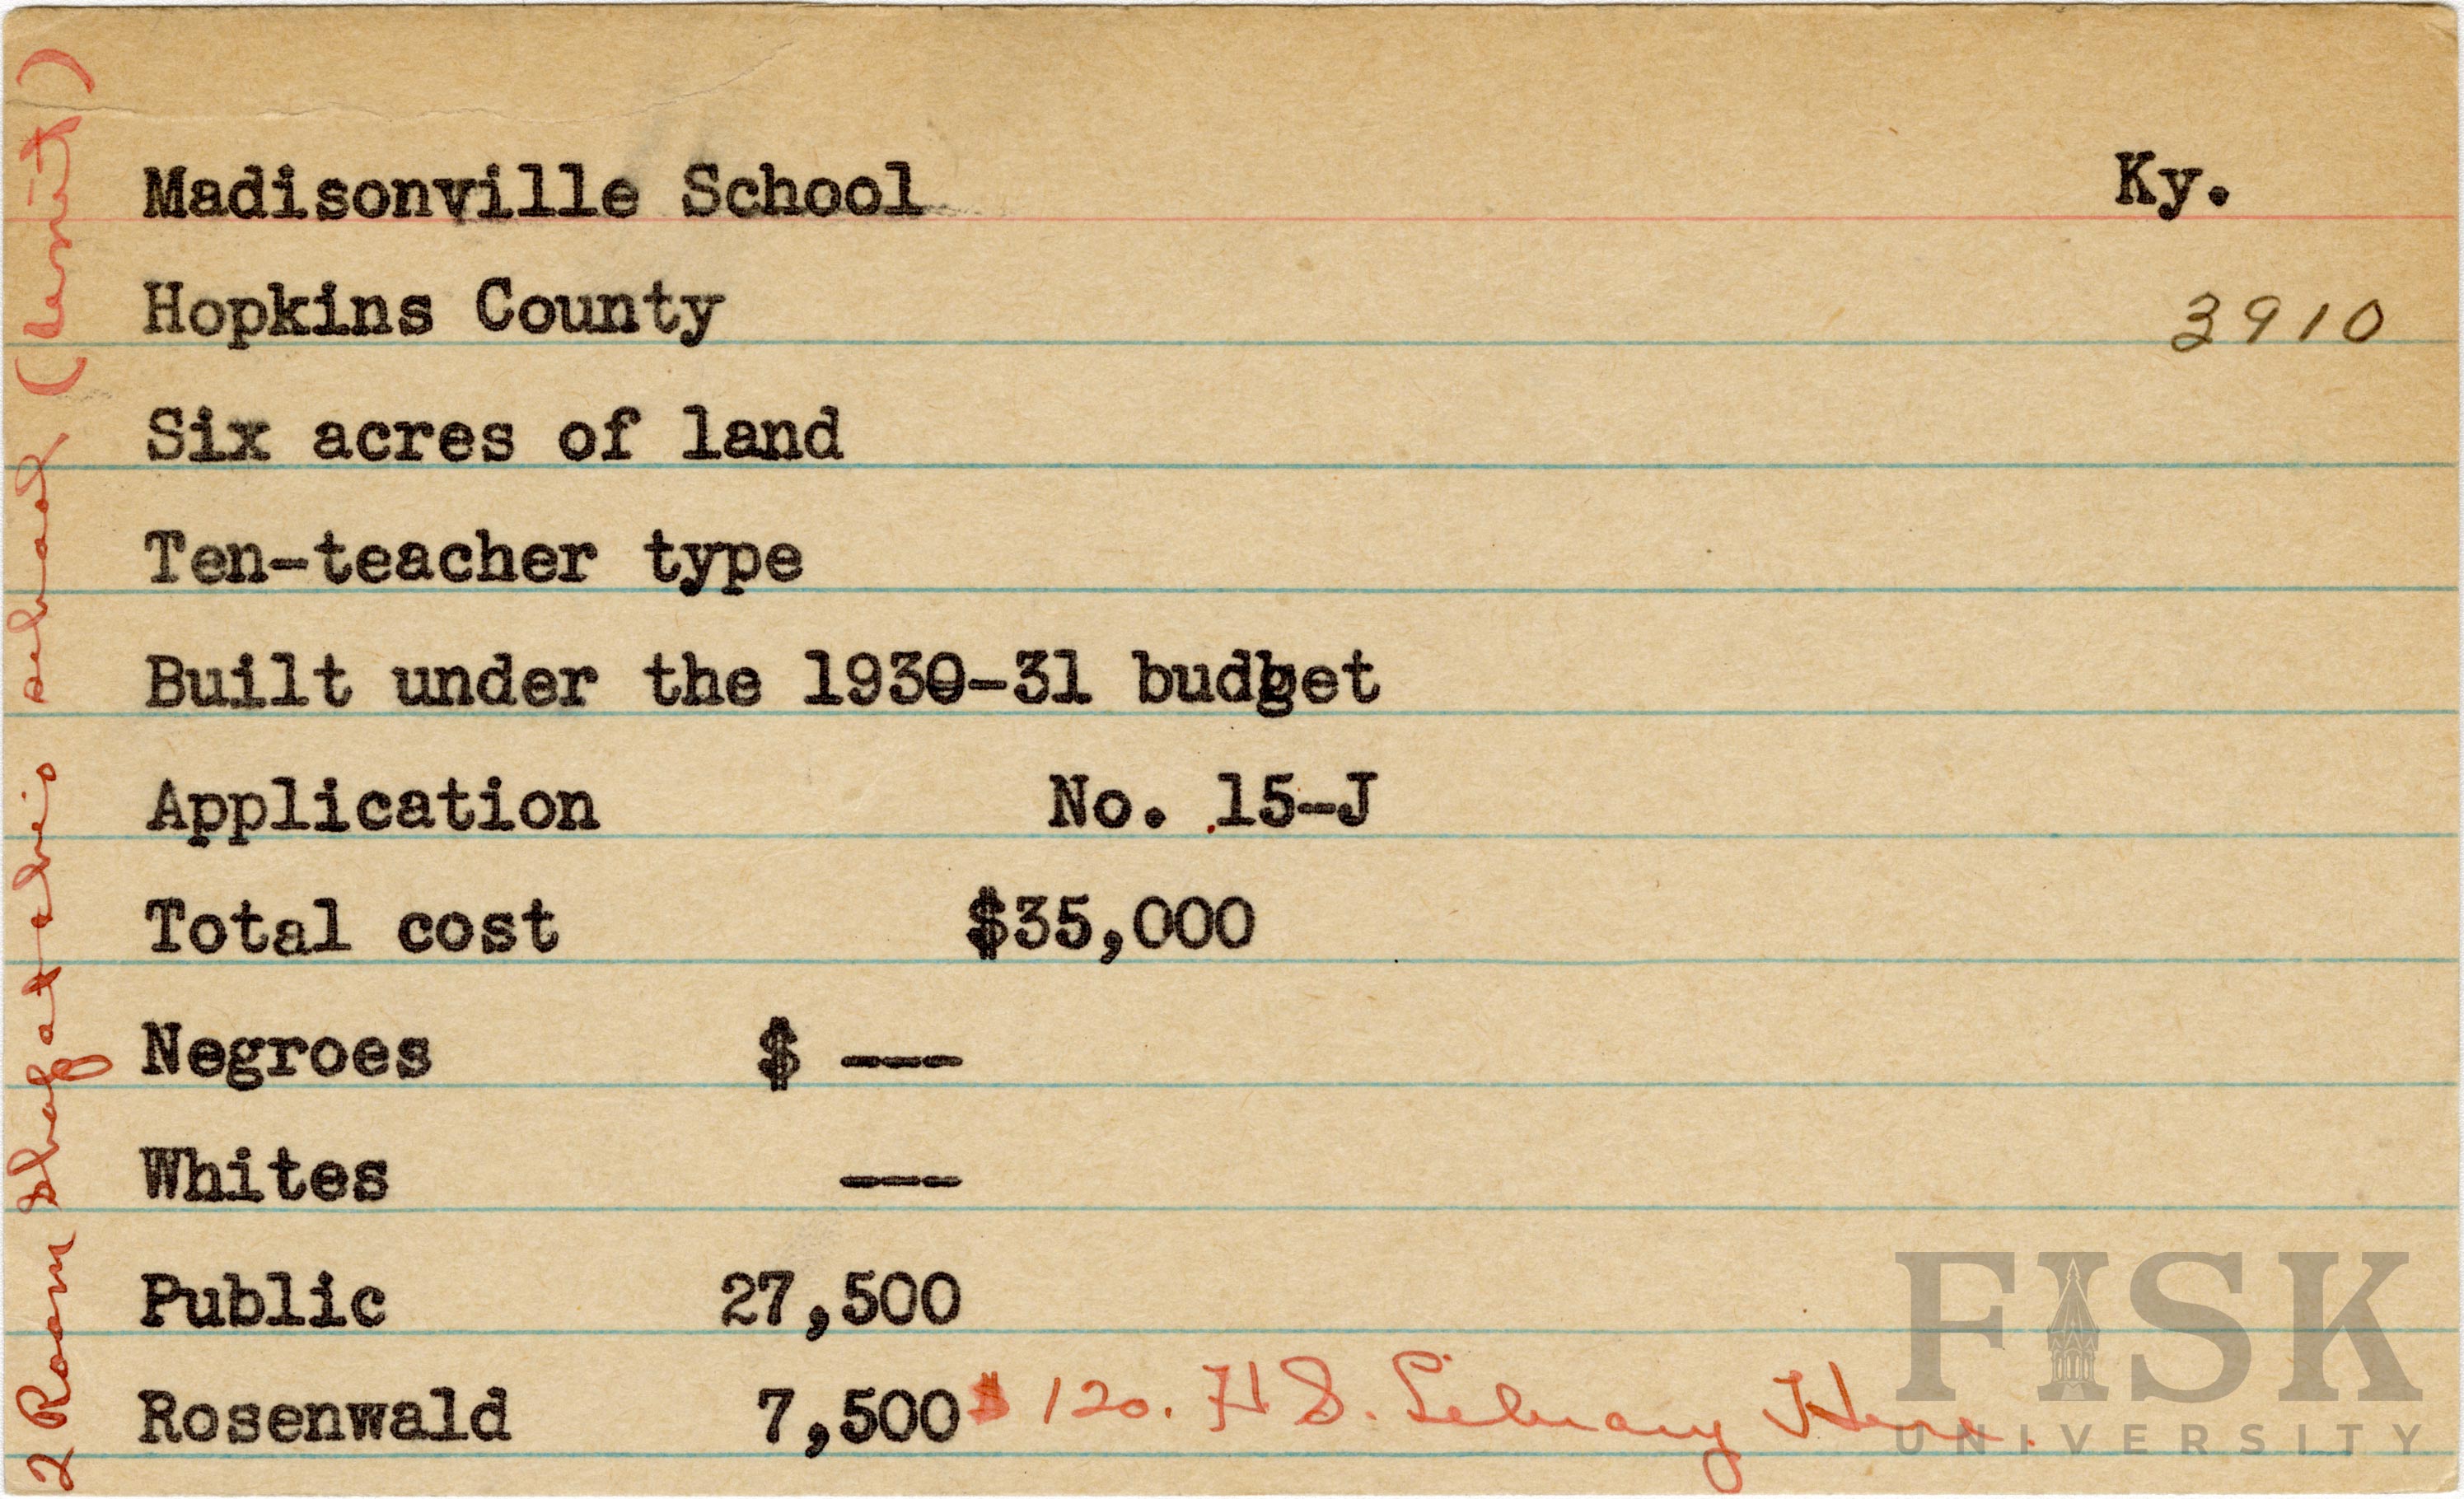 Madisonville School Ky.
Hopkins County 3910
Six acres of land
Ten-teacher type
Built under the 1930-31 budget
Application No. 15-J
Total cost $35,000
Negroes $ ---
Whites ---
Public 27,500
Rosenwald 7,500 $120. H S. Library Here.
2 Room Shop at this school (Unit)
FISK
UNIVERSITY